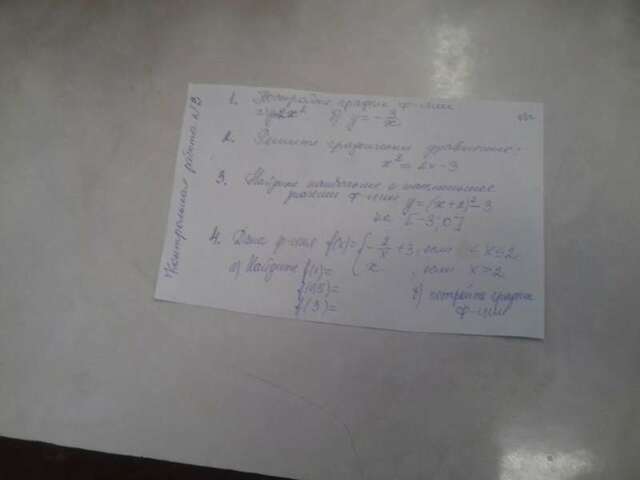 Контрольная работа №3
1. Постройте график ф-ции
y=2x² б) y = -3/x
2. Решите графически уравнение:
x² = 2x-3
3. Найдите наибольшее и наименьшее
значение ф-ции y=(x+2)²-3
на [-3;0]
4. Дана ф-ция f(x)= { -2/x +3, если < x≤2
x , если x>2
а) Найдите f(1)=
f(0,5)=
f(3)=
б) постройте график
ф-ции